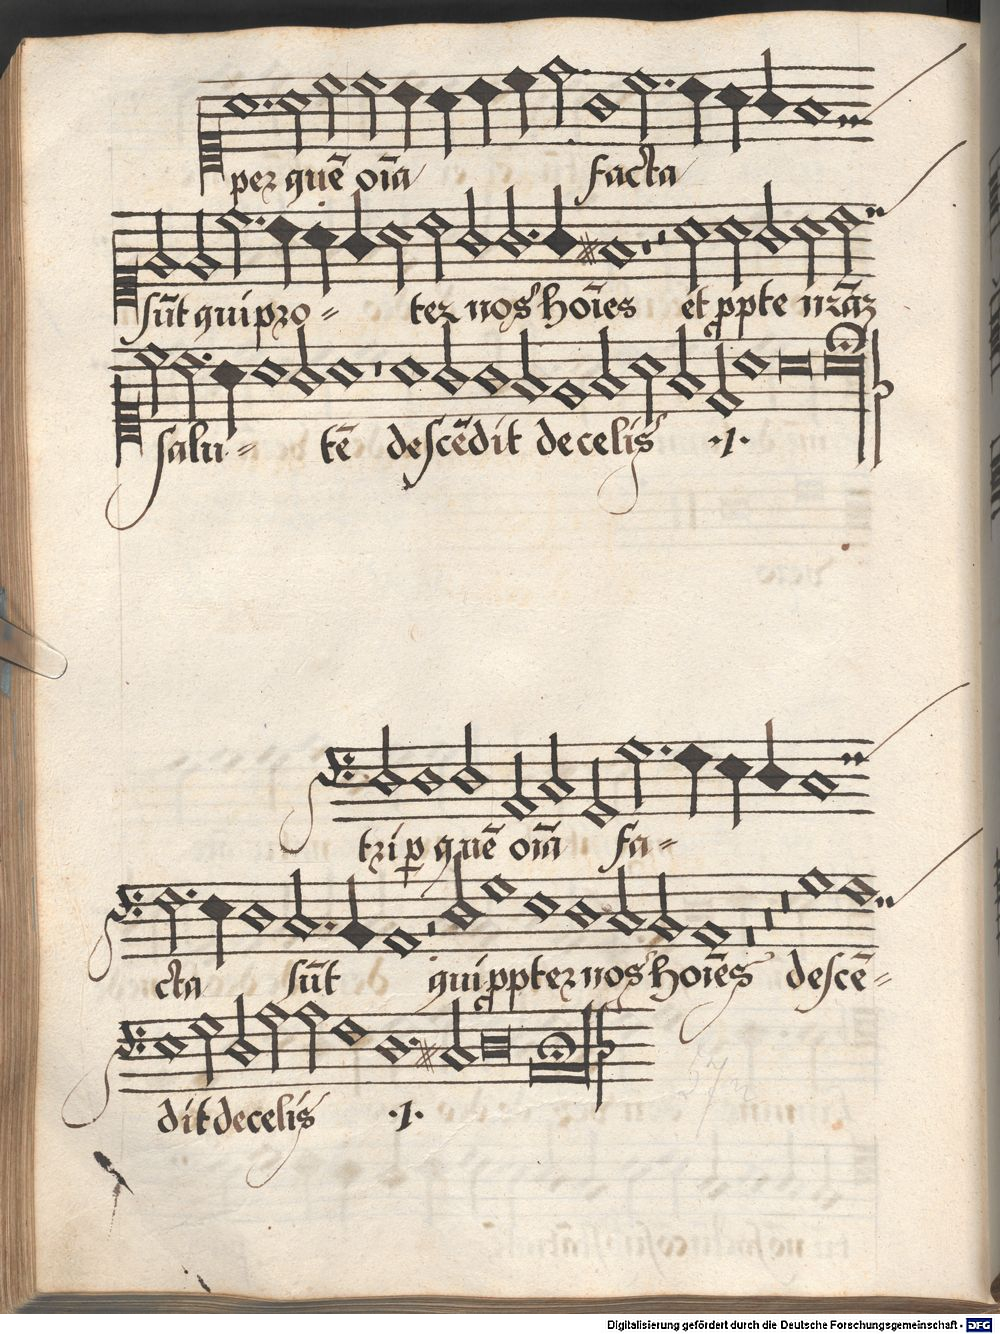 per quē oīa facta
sūt qui pro- ter nos hoīes et ꝓpte nrāꝫ
salu- tē descēdit de celis .1.
tri ꝑ quē oīa fa-
cta sūt qui ꝓpter nos hoīes descē-
dit de celis .1.
Digitalisierung gefördert durch die Deutsche Forschungsgemeinschaft - DFG